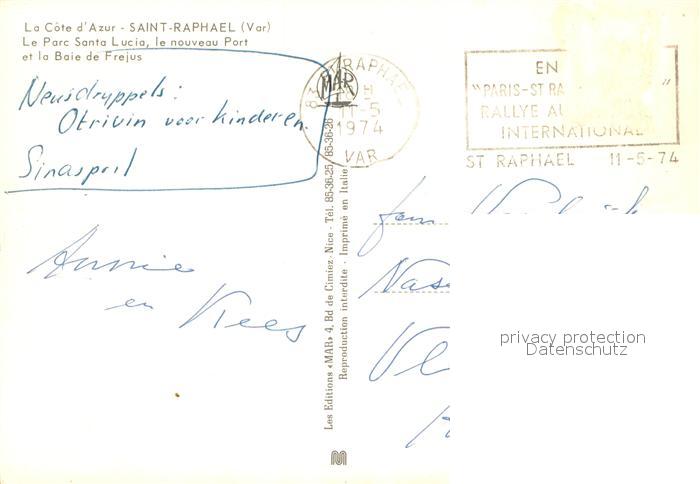 La Côte d'Azur - SAINT-RAPHAEL (Var)
Le Parc Santa Lucia, le nouveau Port
et la Baie de Frejus
Neusdruppels:
Otrivin voor kinderen.
Sinaspril
Annie
en Kees
MAR
RAPHAEL
11-5
1974
VAR
EN
"PARIS-ST RA "
RALLYE AU
INTERNATIONAL
ST RAPHAEL 11-5-74
Les Editions «MAR» 4, Bd de Cimiez - Nice - Tél. 85-36-25/85-36-26
Reproduction interdite - Imprimé en Italie
fam
Nas
Vl
privacy protection
Datenschutz